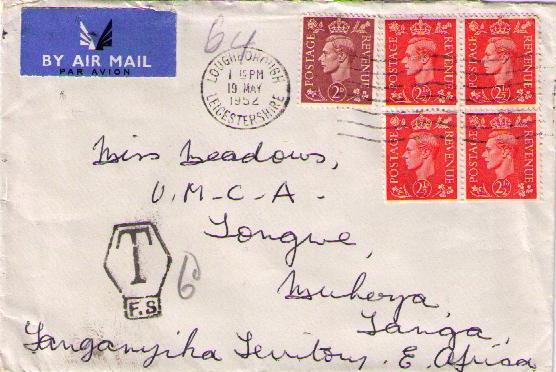 BY AIR MAIL
PAR AVION
6d
LOUGHBOROUGH
1 15 PM
19 MAY
1952
LEICESTERSHIRE
POSTAGE REVENUE
2D
POSTAGE REVENUE
2½D
POSTAGE REVENUE
2½D
POSTAGE REVENUE
2½D
POSTAGE REVENUE
2½D
Miss Meadows,
U.M.C.A.
Tongwe,
Muheza,
Tanga,
Tanganyika Territory. E. Africa
T
F.S.
6d